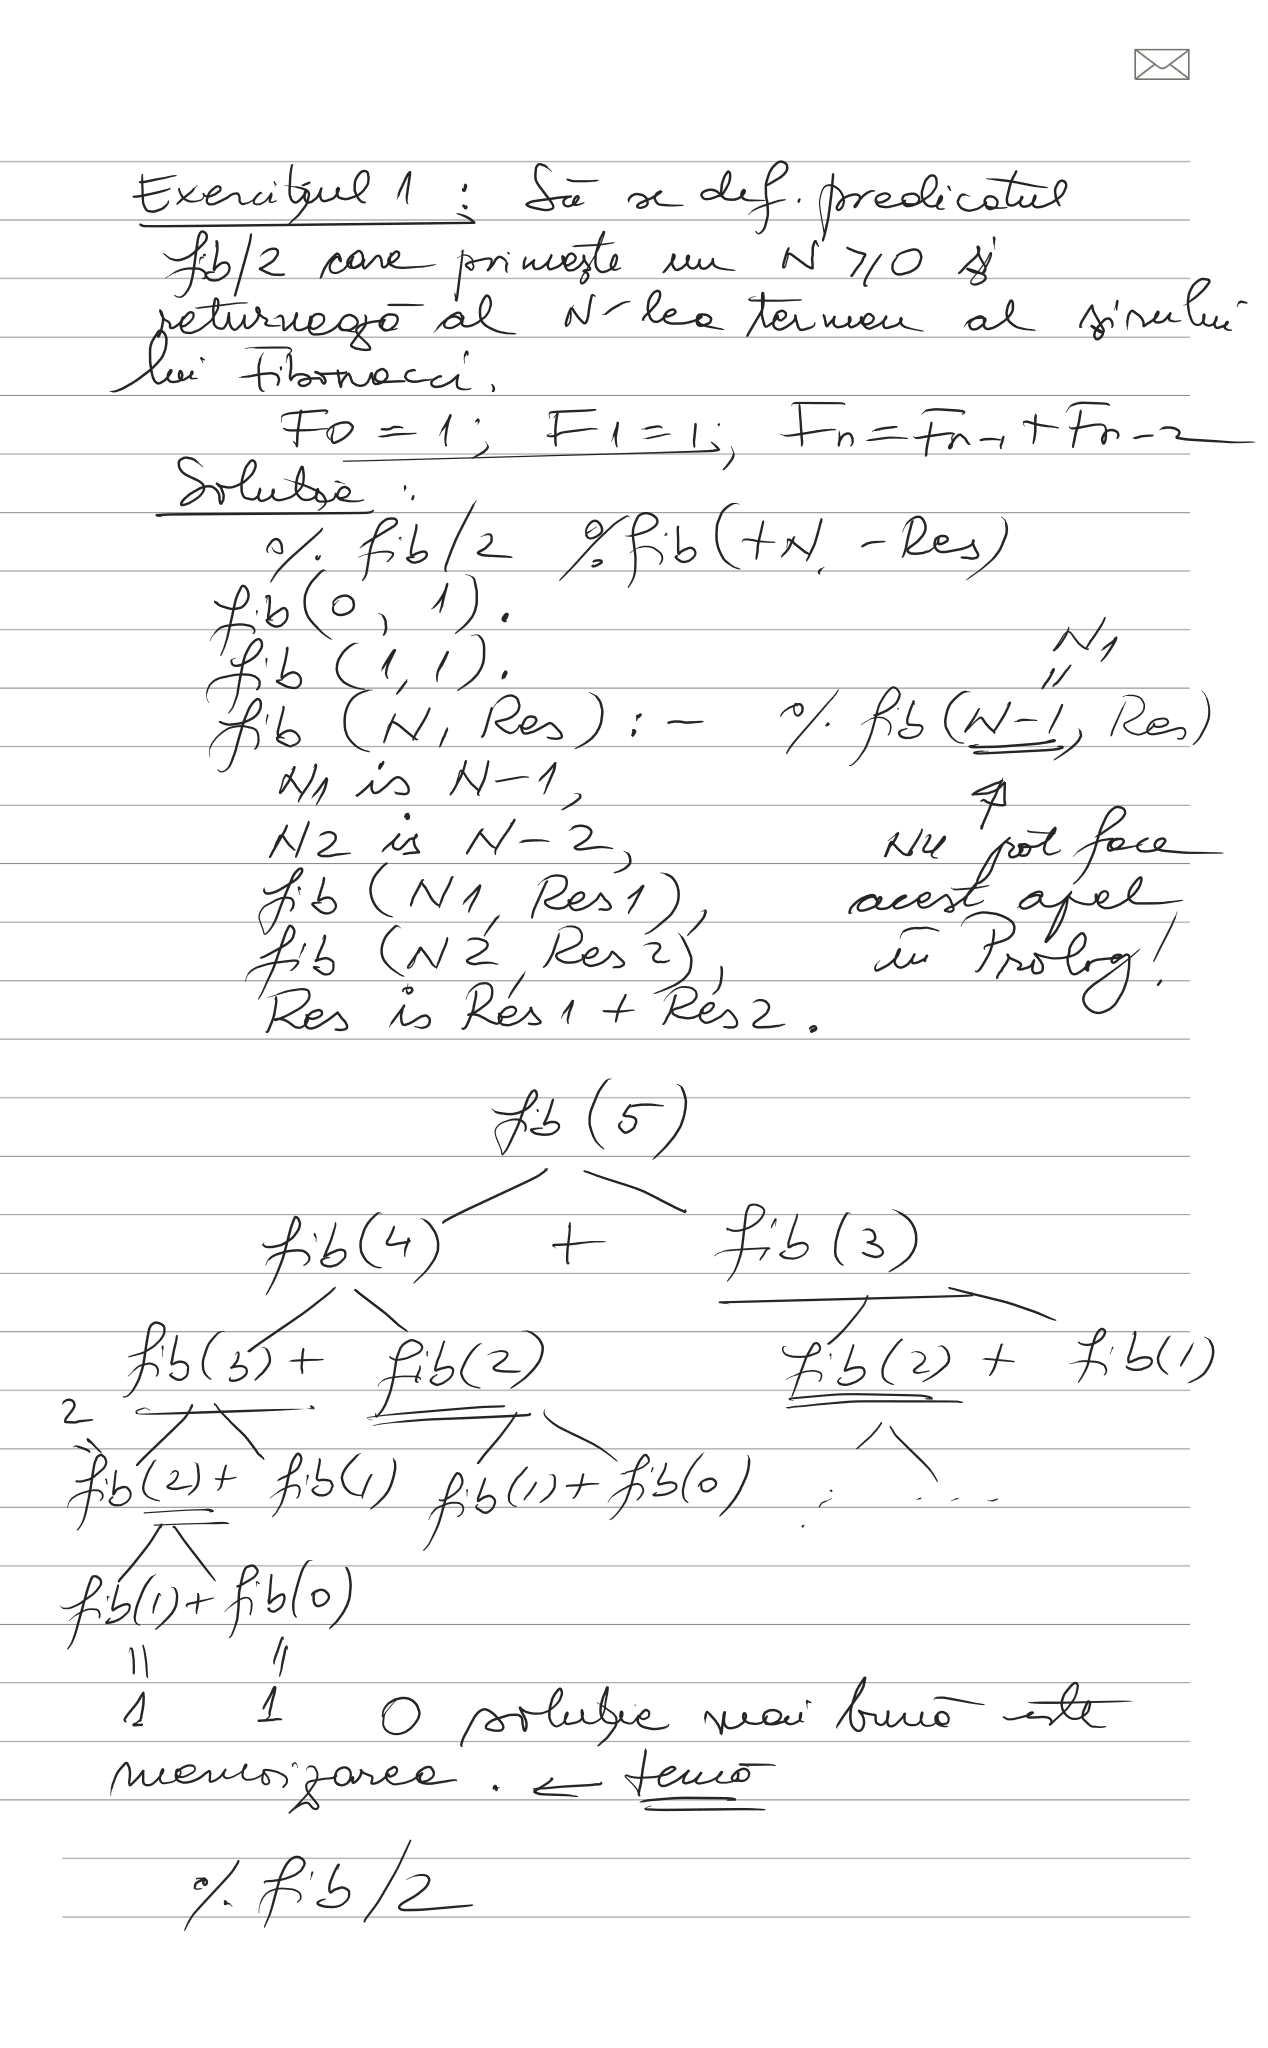 Exercițiul 1 : Să se def. predicatul
fib/2 care primește un N ≥ 0 și
returnează al N-lea termen al șirului
lui Fibonacci.
F0 = 1; F1 = 1; Fn = Fn-1 + Fn-2
Soluție :
% fib/2 % fib(+N, -Res)
fib(0, 1).
fib (1, 1).
N1
=
fib (N, Res) :- % fib(N-1, Res)
N1 is N-1,
N2 is N-2, Nu pot face
fib (N1, Res1), acest apel
fib (N2, Res2), în Prolog!
Res is Res1 + Res2.
fib (5)
fib(4) + fib(3)
fib(3) + fib(2) fib(2) + fib(1)
2
fib(2) + fib(1) fib(1) + fib(0) : ....
fib(1) + fib(0)
= =
1 1 O soluție mai bună este
memoizarea. ← temă
% fib/2